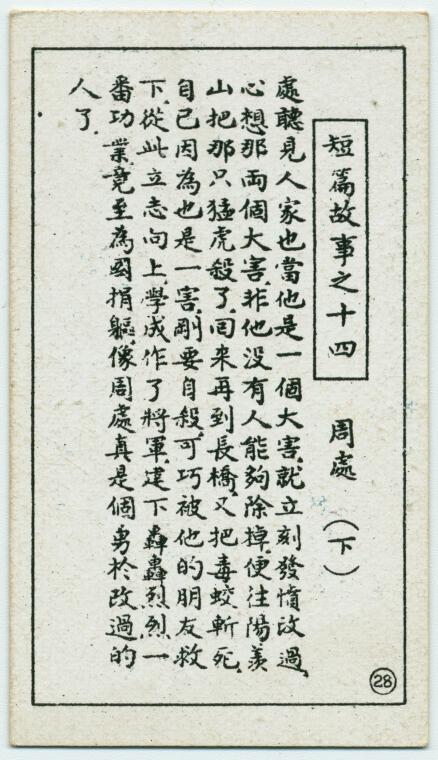 短篇故事之十四
周處(下)
處聽見人家也當他是一個大害,就立刻發憤改過,
心想那両個大害,非他没有人能夠除掉,便往陽羨
山把那只猛虎殺了,囘來再到長橋,又把毒蛟斬死,
自已因為也是一害,剛要自殺,可巧被他的朋友救
下,從此立志向上,學成作了將軍,建下轟轟烈烈,一
番功業,竟至為國捐軀,像周處真是個勇於改過的
人了.
28